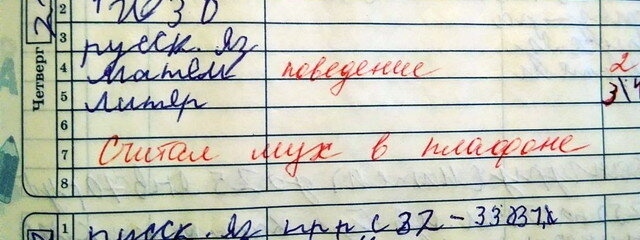 Четверг
2 ИЗО
3 русск. яз
4 матем поведение 2
5 литер 3\4
6
7 Считал мух в плафоне
8
1 русск. яз